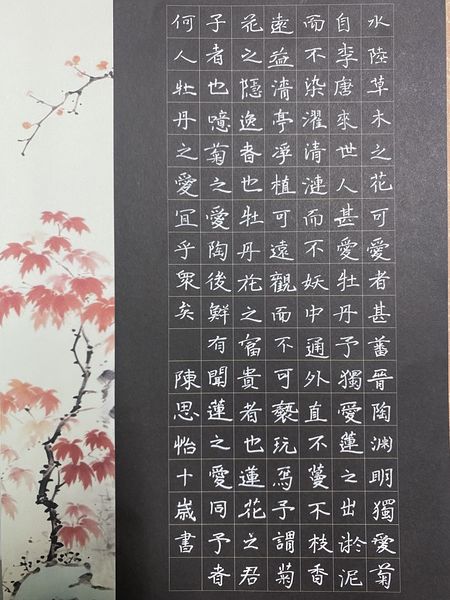 水陸草木之花可愛者甚蕃晉陶淵明獨愛菊
自李唐來世人甚愛牡丹予獨愛蓮之出淤泥
而不染濯清漣而不妖中通外直不蔓不枝香
遠益清亭淨植可遠觀而不可褻玩焉予謂菊
花之隱逸者也牡丹花之富貴者也蓮花之君
子者也噫菊之愛陶後鮮有聞蓮之愛同予者
何人牡丹之愛宜乎衆矣 陳思怡十歲書